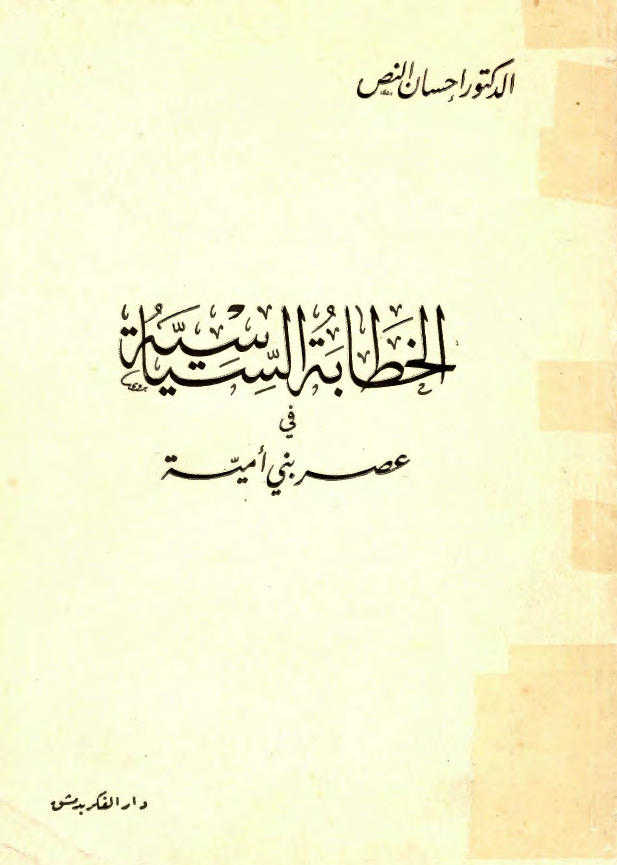 الدكتور إحسان النص
الخطابة السِّيَاسيَّة
في
عصر بني أميّة
دار الفكر بدمشق